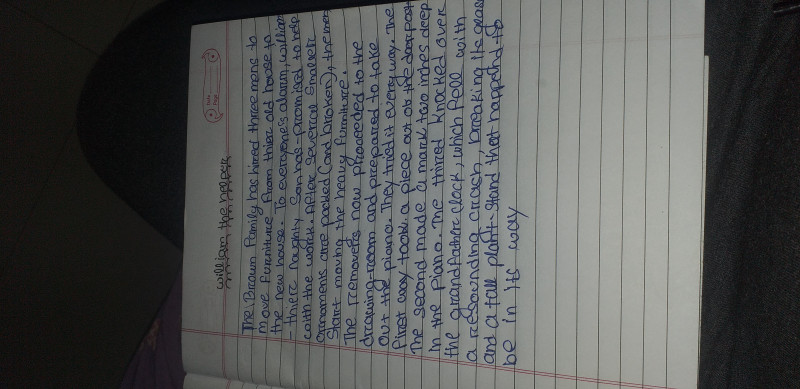 william the helper
The Brown Family has hired three mens to
move furniture from thier old house to
the new house. To everyone's alarm, william
- thier naughty son has promised to help
with the work. After several smaller
ornaments are packed (and broken), the men
start moving the heavy furniture.
The removers now proceeded to the
drawing-room and prepared to take
out the piano. They tried it every way. The
first way took a piece out of the door post
The second made a mark two inches deep
in the piano. The thired knocked over
the grandfather clock, which fell with
a resounding crash, breaking its glass
and a tall plant-stand that happened to
be in its way